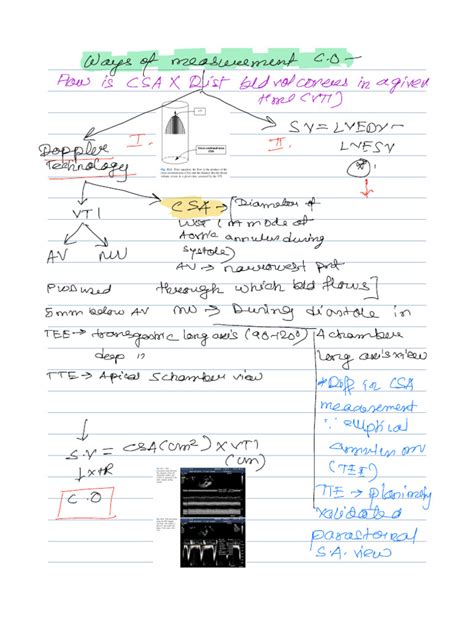 Ways of measurement C.O -
Flow is CSA X Dist bld vol covers in a given
time (VTI)
I.
II.
SV = LVEDV -
LVESV
Doppler
Technology
VTI
CSA → [Diameter of
(M mode of
Aortic annulus during
systole)
AV MV
AV → narrowest pnt
PWD used
through which bld flows]
5mm below AV
MV → During diastole in
TEE → transgastric long axis (90-120°)
deep
4 chamber
long axis view
TTE → Apical 5 chamber view
* Diff in CSA
measurement
∵ elliptical
annulus on
(TEE)
S.V = CSA (cm²) X VTI
(cm)
↓ x HR
C.O
TTE → planimetry
validated
parasternal
S.A. view